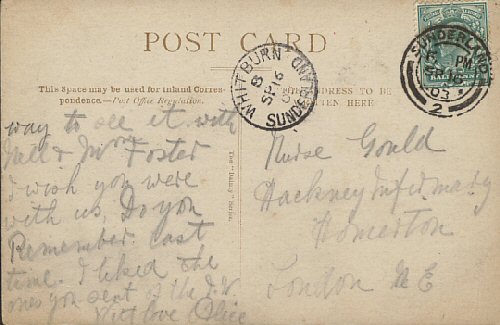 POST CARD
This Space may be used for Inland Corres-
pondence.—Post Office Regulation.
ADDRESS TO BE
HERE
WHITBURN
8
SP 16
SUNDERLAND
SUNDERLAND
PM
03
2
way to see it with
Nell & Mrs Foster
I wish you were
with us, Do you
Remember last
time. I liked the
ones you sent of the
With love Alice
The "Dainty" Series.
Nurse Gould
Hackney Infirmary
Homerton
London N E